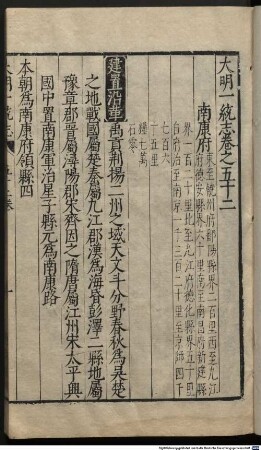 大明一統志卷之五十二
南康府
東至饒州府鄱陽縣界二百里西至九江
府德安縣界六十里南至南昌府新建縣
界一百二十里北至九江府德化縣界五十里
自府治至南京一千三百二十里至京師四千
七百六
十五里
建置沿革
禹貢荆揚二州之域天文斗分野春秋為吳楚
之地戰國屬楚秦屬九江郡漢為海昏彭澤二縣地屬
豫章郡晉屬潯陽郡宋齊因之隋唐屬江州宋太平興
國中置南康軍治星子縣元為南康路
本朝為南康府領縣四